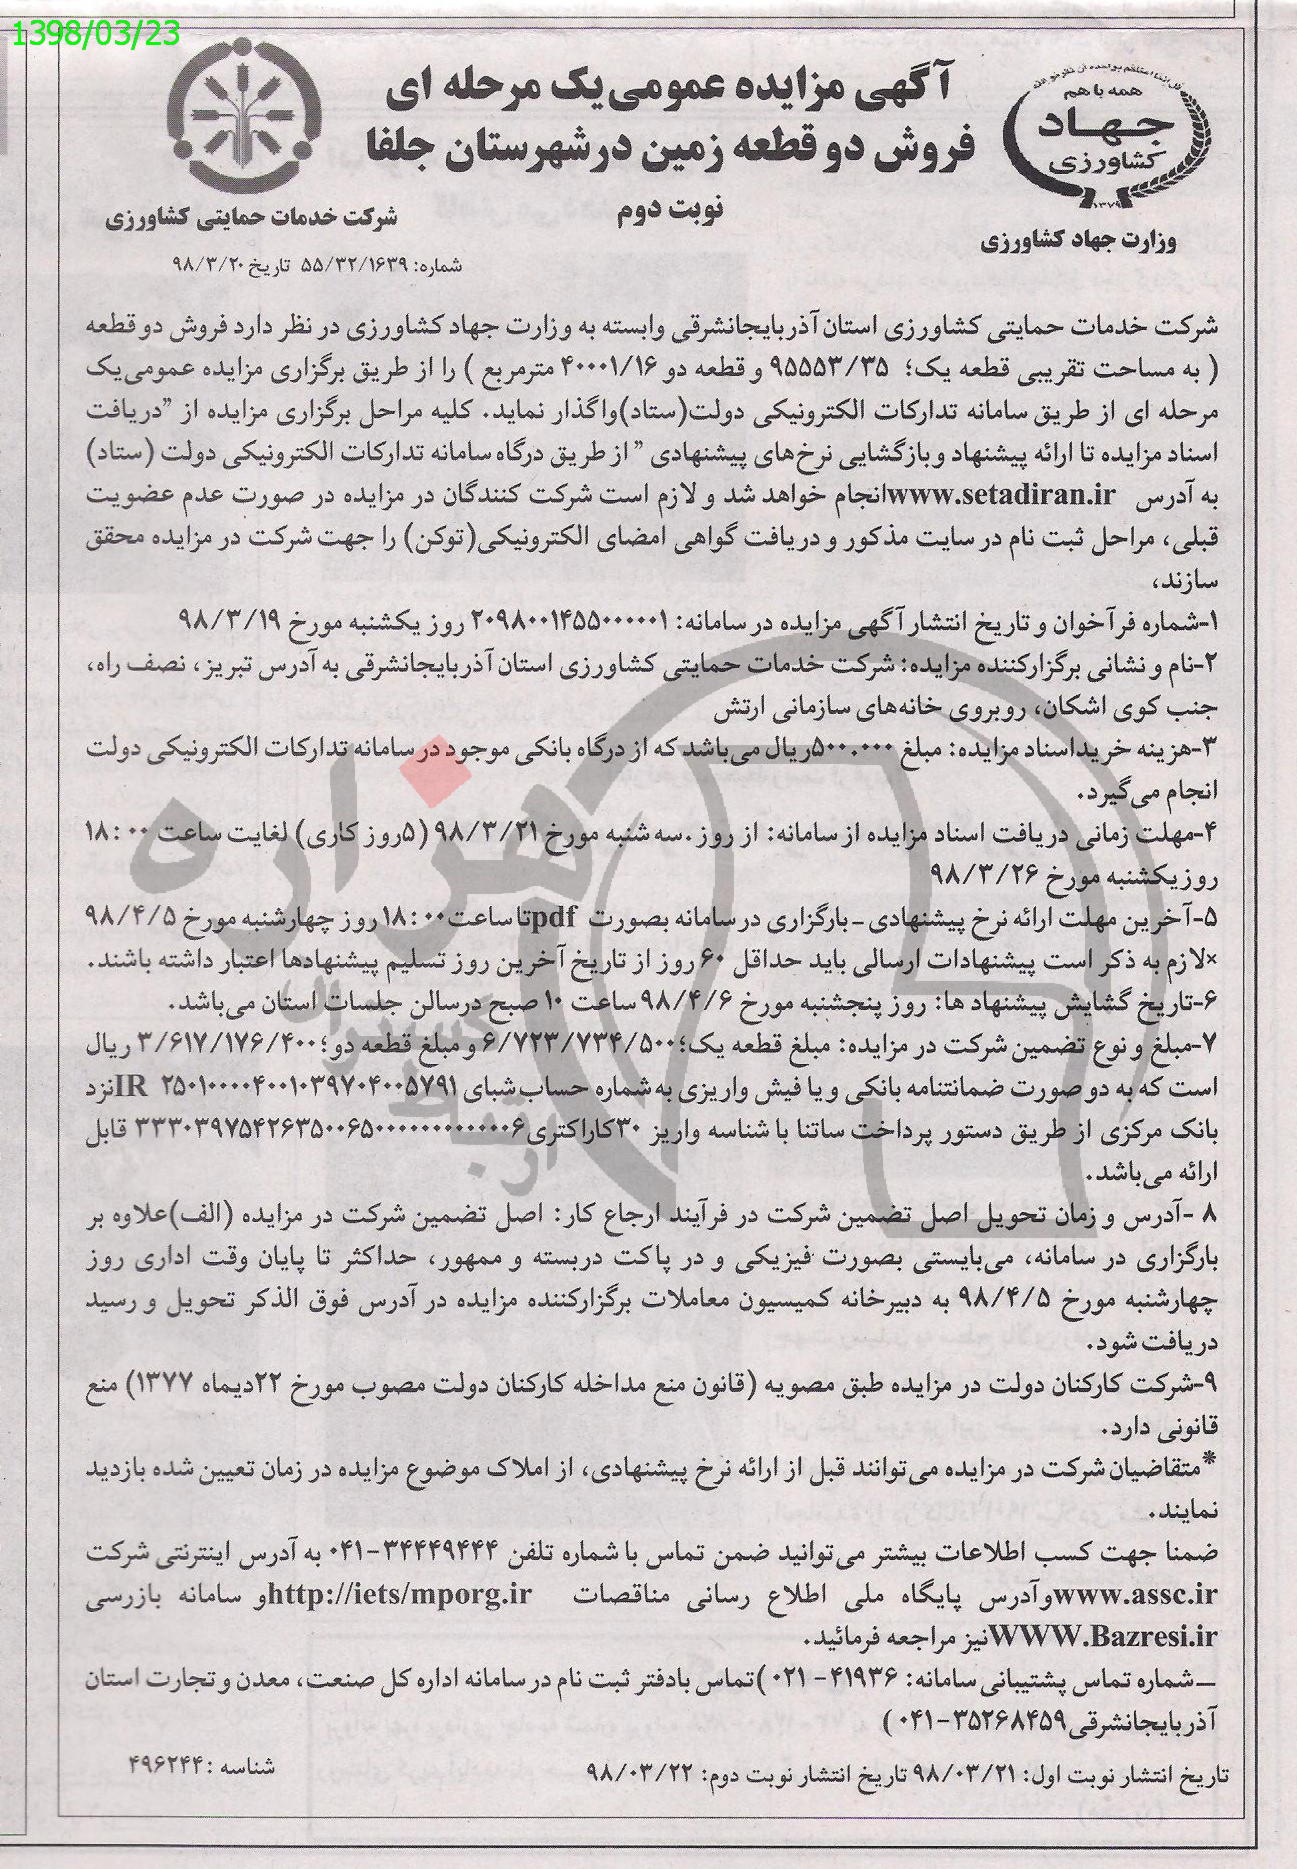 1398/03/23
همه با هم
جهاد
کشاورزی
۱۳۷۹
وزارت جهاد کشاورزی
آگهی مزایده عمومی یک مرحله ای
فروش دو قطعه زمین درشهرستان جلفا
نوبت دوم
شرکت خدمات حمایتی کشاورزی
شماره: ۵۵/۳۲/۱۶۳۹ تاریخ ۹۸/۳/۲۰
شرکت خدمات حمایتی کشاورزی استان آذربایجانشرقی وابسته به وزارت جهاد کشاورزی در نظر دارد فروش دو قطعه
( به مساحت تقریبی قطعه یک؛ ۹۵۵۵۳/۳۵ و قطعه دو ۴۰۰۰۱/۱۶ مترمربع ) را از طریق برگزاری مزایده عمومی یک
مرحله ای از طریق سامانه تدارکات الکترونیکی دولت(ستاد)واگذار نماید. کلیه مراحل برگزاری مزایده از "دریافت
اسناد مزایده تا ارائه پیشنهاد و بازگشایی نرخ‌های پیشنهادی " از طریق درگاه سامانه تدارکات الکترونیکی دولت (ستاد)
به آدرس www.setadiran.ir انجام خواهد شد و لازم است شرکت کنندگان در مزایده در صورت عدم عضویت
قبلی، مراحل ثبت نام در سایت مذکور و دریافت گواهی امضای الکترونیکی(توکن) را جهت شرکت در مزایده محقق
سازند،
۱-شماره فرآخوان و تاریخ انتشار آگهی مزایده در سامانه: ۲۰۹۸۰۰۱۴۵۵۰۰۰۰۰۱ روز یکشنبه مورخ ۹۸/۳/۱۹
۲-نام و نشانی برگزارکننده مزایده: شرکت خدمات حمایتی کشاورزی استان آذربایجانشرقی به آدرس تبریز، نصف راه،
جنب کوی اشکان، روبروی خانه‌های سازمانی ارتش
۳-هزینه خریداسناد مزایده: مبلغ ۵۰۰.۰۰۰ریال می‌باشد که از درگاه بانکی موجود در سامانه تدارکات الکترونیکی دولت
انجام می‌گیرد.
۴-مهلت زمانی دریافت اسناد مزایده از سامانه: از روز .سه شنبه مورخ ۹۸/۳/۲۱ (۵روز کاری) لغایت ساعت ۱۸:۰۰
روز یکشنبه مورخ ۹۸/۳/۲۶
۵-آخرین مهلت ارائه نرخ پیشنهادی - بارگزاری در سامانه بصورت pdf تا ساعت ۱۸:۰۰ روز چهارشنبه مورخ ۹۸/۴/۵
×لازم به ذکر است پیشنهادات ارسالی باید حداقل ۶۰ روز از تاریخ آخرین روز تسلیم پیشنهادها اعتبار داشته باشند.
۶-تاریخ گشایش پیشنهاد ها: روز پنجشنبه مورخ ۹۸/۴/۶ ساعت ۱۰ صبح درسالن جلسات استان می‌باشد.
۷-مبلغ و نوع تضمین شرکت در مزایده: مبلغ قطعه یک؛۶/۷۲۳/۷۳۴/۵۰۰ و مبلغ قطعه دو؛ ۳/۶۱۷/۱۷۶/۴۰۰ ریال
است که به دو صورت ضمانتنامه بانکی و یا فیش واریزی به شماره حساب شبای IR ۲۵۰۱۰۰۰۰۴۰۰۱۰۳۹۷۰۴۰۰۵۷۹۱ نزد
بانک مرکزی از طریق دستور پرداخت ساتنا با شناسه واریز ۳۰کاراکتری ۳۳۳۰۳۹۷۵۴۲۶۳۵۰۰۶۵۰۰۰۰۰۰۰۰۰۰۰۰۶ قابل
ارائه می‌باشد.
۸ -آدرس و زمان تحویل اصل تضمین شرکت در فرآیند ارجاع کار: اصل تضمین شرکت در مزایده (الف)علاوه بر
بارگزاری در سامانه، می‌بایستی بصورت فیزیکی و در پاکت دربسته و ممهور، حداکثر تا پایان وقت اداری روز
چهارشنبه مورخ ۹۸/۴/۵ به دبیرخانه کمیسیون معاملات برگزارکننده مزایده در آدرس فوق الذکر تحویل و رسید
دریافت شود.
۹-شرکت کارکنان دولت در مزایده طبق مصوبه (قانون منع مداخله کارکنان دولت مصوب مورخ ۲۲دیماه ۱۳۷۷) منع
قانونی دارد.
*متقاضیان شرکت در مزایده می‌توانند قبل از ارائه نرخ پیشنهادی، از املاک موضوع مزایده در زمان تعیین شده بازدید
نمایند.
ضمنا جهت کسب اطلاعات بیشتر می‌توانید ضمن تماس با شماره تلفن ۳۴۴۴۹۴۴۴-۰۴۱ به آدرس اینترنتی شرکت
www.assc.ir وآدرس پایگاه ملی اطلاع رسانی مناقصات http://iets/mporg.ir و سامانه بازرسی
WWW.Bazresi.ir نیز مراجعه فرمائید.
ــ شماره تماس پشتیبانی سامانه: ۴۱۹۳۶- ۰۲۱ )تماس بادفتر ثبت نام در سامانه اداره کل صنعت، معدن و تجارت استان
آذربایجانشرقی ۳۵۲۶۸۴۵۹-۰۴۱ )
تاریخ انتشار نوبت اول: ۹۸/۰۳/۲۱ تاریخ انتشار نوبت دوم: ۹۸/۰۳/۲۲
شناسه : ۴۹۶۲۴۴
هزاره